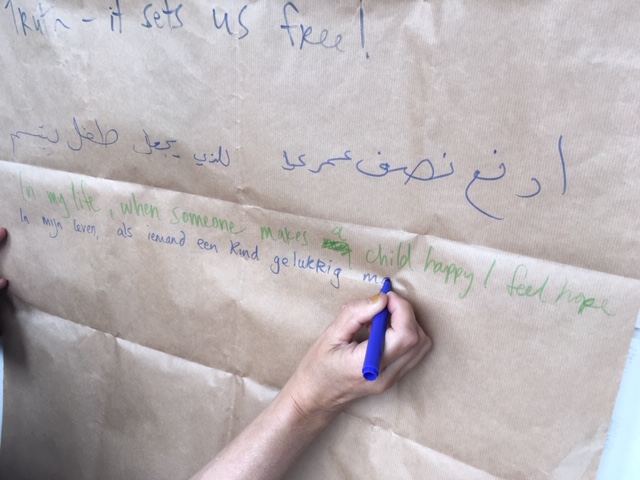 Truth - it sets us free!
ادفع نصف عمري للذي يجعل طفل يبتسم
In my life, when someone makes a child happy I feel hope
In mijn leven, als iemand een kind gelukkig ma